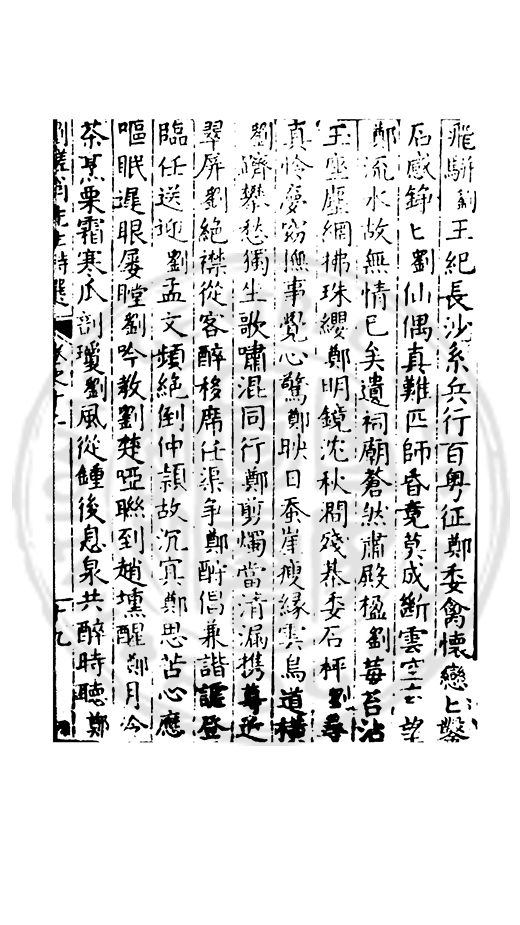 飛騈劉王紀長沙系兵行百粵征鄭委禽懷戀匕鑿
石感錚匕劉仙偶真難匹師昏竟莫成斷雲空玄望
鄭流水故無情已矣遺祠廟蒼然肅殿楹劉莓苔沾
玉座塵網拂珠纓鄭明鏡沈秋澗殘棊委石枰劉尋
真怜憂窈撫事覺心驚鄭映日泰崖瘦緣雲鳥道橫
劉躋攀愁獨坐歌嘯混同行鄭剪燭當清漏携尊近
翠屏劉絕襟從客醉移席任渠爭鄭酬倡兼諧謳登
臨任送迎劉孟文頻絕倒仲頴故沉冥鄭思苦心應
嘔眠遲眼屢瞠劉吟教劉楚啞聯到趙壎醒鄭月冷
茶烹栗霜寒瓜剖瓊劉風從鍾後息泉共醉時聽鄭
劉槎翁先生詩選 卷之十二 十九